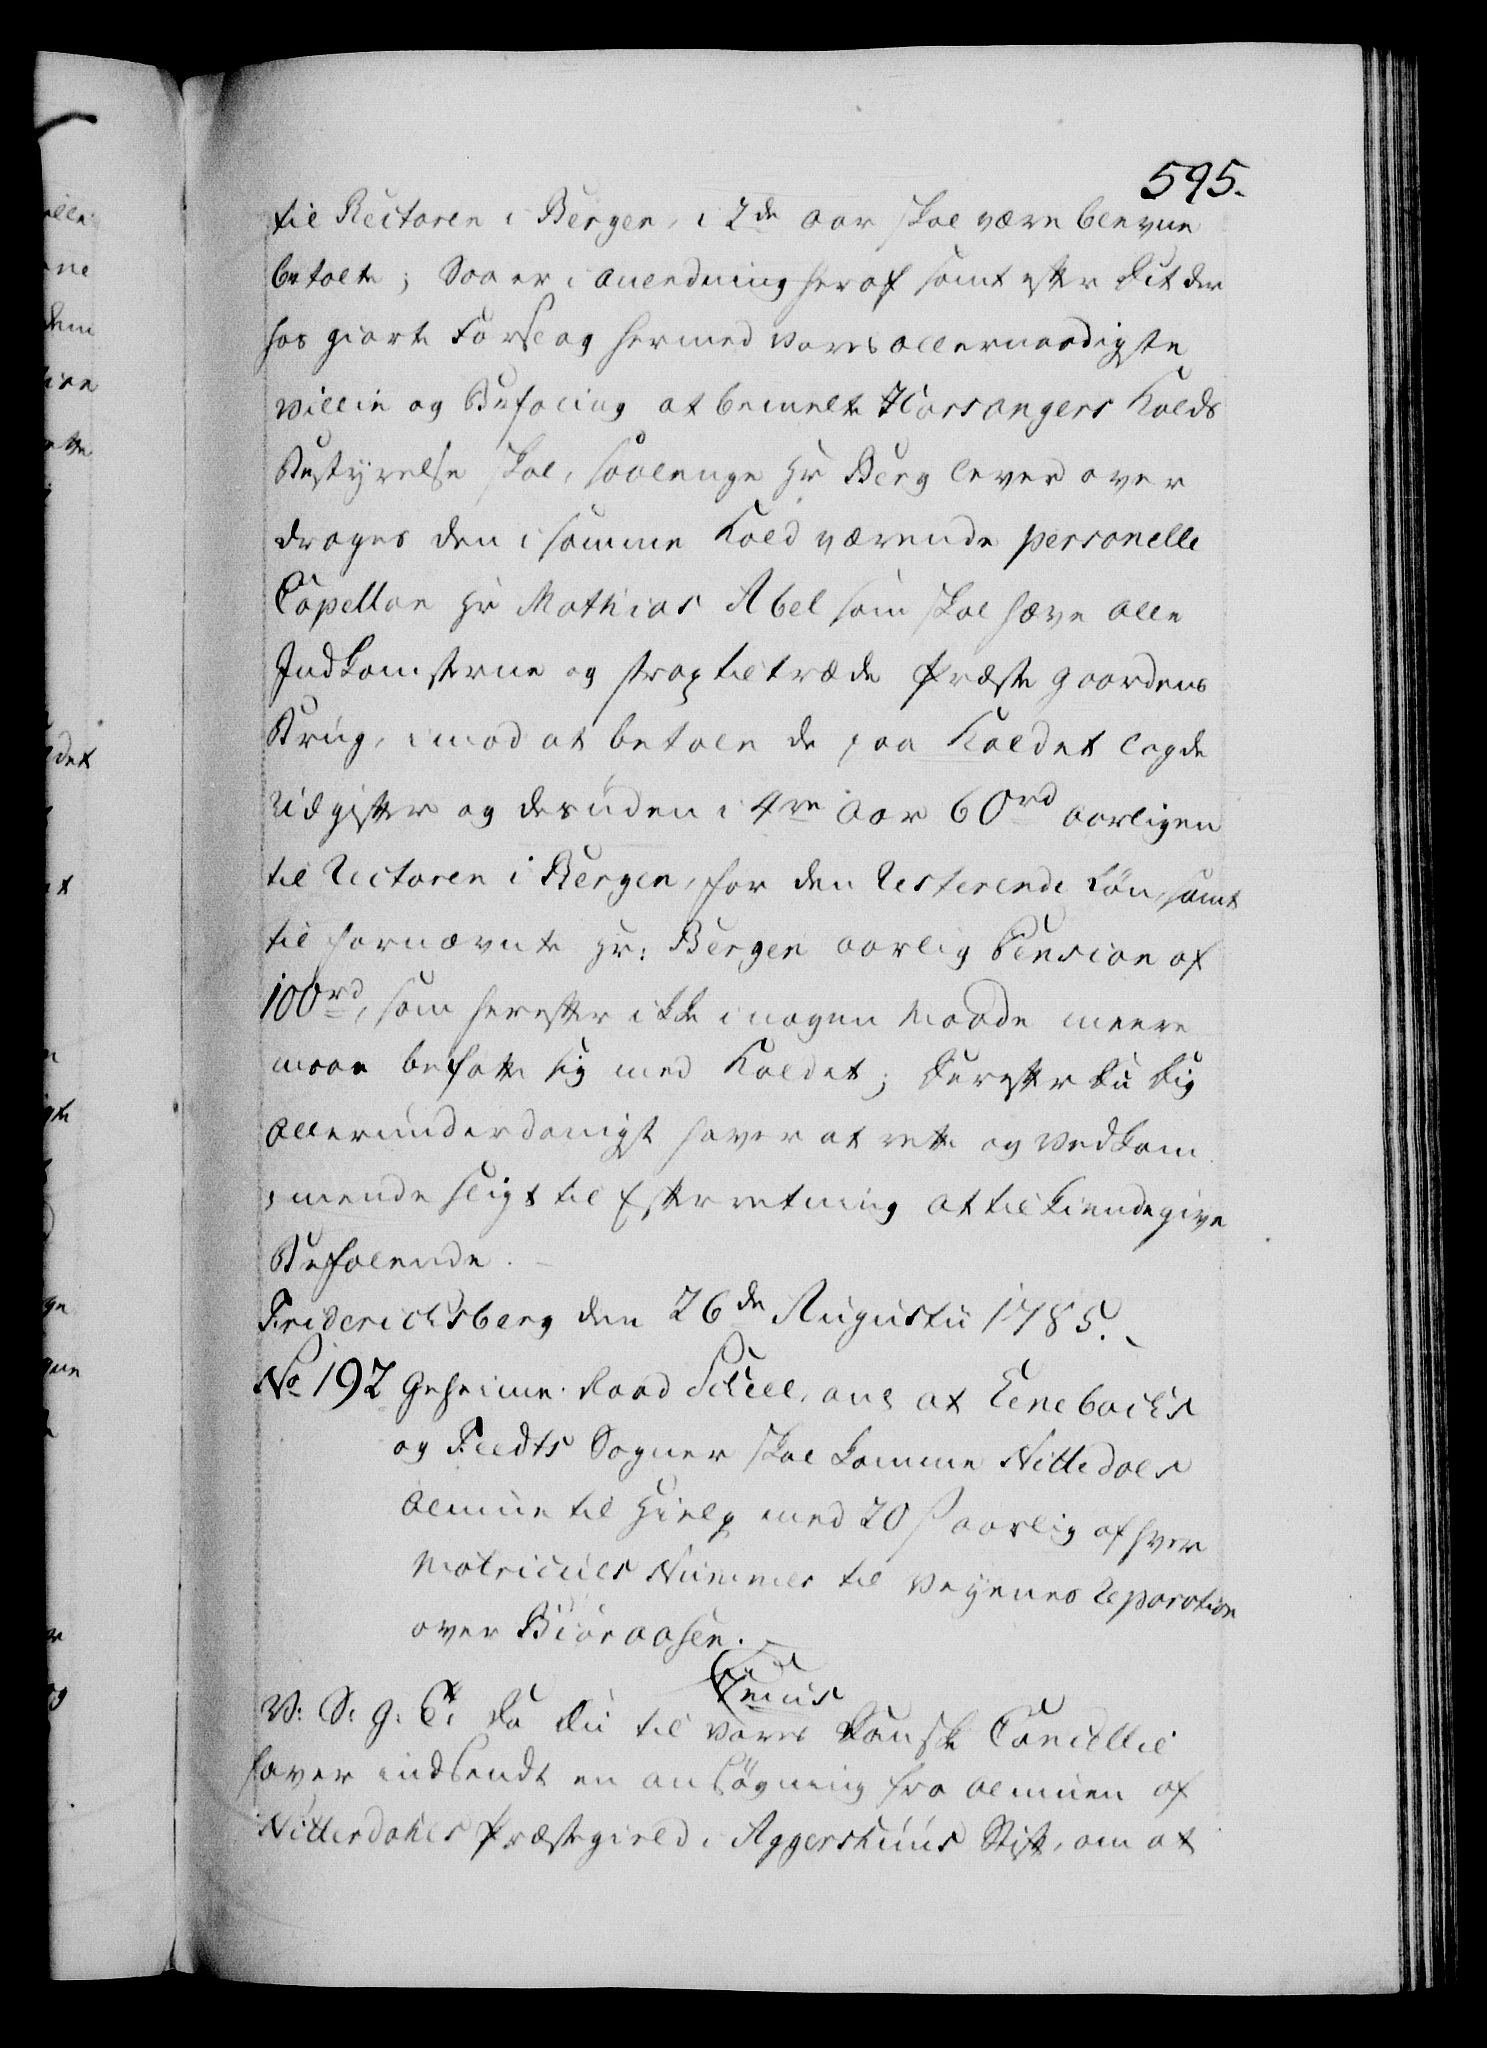 595.
til Rectoren i Bergen, i 2de Aar skal være blevne
betalte; Saa er i Anledning heraf samt efter Dit der
hos giorte Forslag hermed Vores allernaadigste
Villie og Befaling at bemelte Korsangers Kalds
Bestyrelse skal, saalenge Hr Berg lever over
drages den i samme Kald værende personelle
Capellan Hr Mathias Abel som skal hæve alle
Indkomsterne og strax tiltræde Præste gaardens
Brug, imod at betale de paa Kaldet lagde
Udgifter og desuden i 4re Aar 60rd aarligen
til Rectoren i Bergen, for den resterende Løn, samt
til fornævnte Hr: Bergen aarlig Pension af
100rd, som herefter ikke i nogen Maade meere
maae befatte sig med Kaldet; Derefter Du Dig
allerunderdanigst haver at rette og Vedkom
mende sligt til Efterretning at tilkiendegive
Befalende.
Friderichsberg den 26de Augustii 1785.
No 192 Geheime Raad Scheel, anl at Enebachs
og Feedts Sogner skal komme Nittedals
Almue til Hielp med 20 s aarlig af hver
Matriculs Nummer til Veyenes Reparation
over Biøraasen.
V: S: g: T: Da Du til Vores Danske Cancellie
haver indsendt en ansøgning fra Almuen af
Nitterdahls Præstegield i Aggershuus Stift, om at